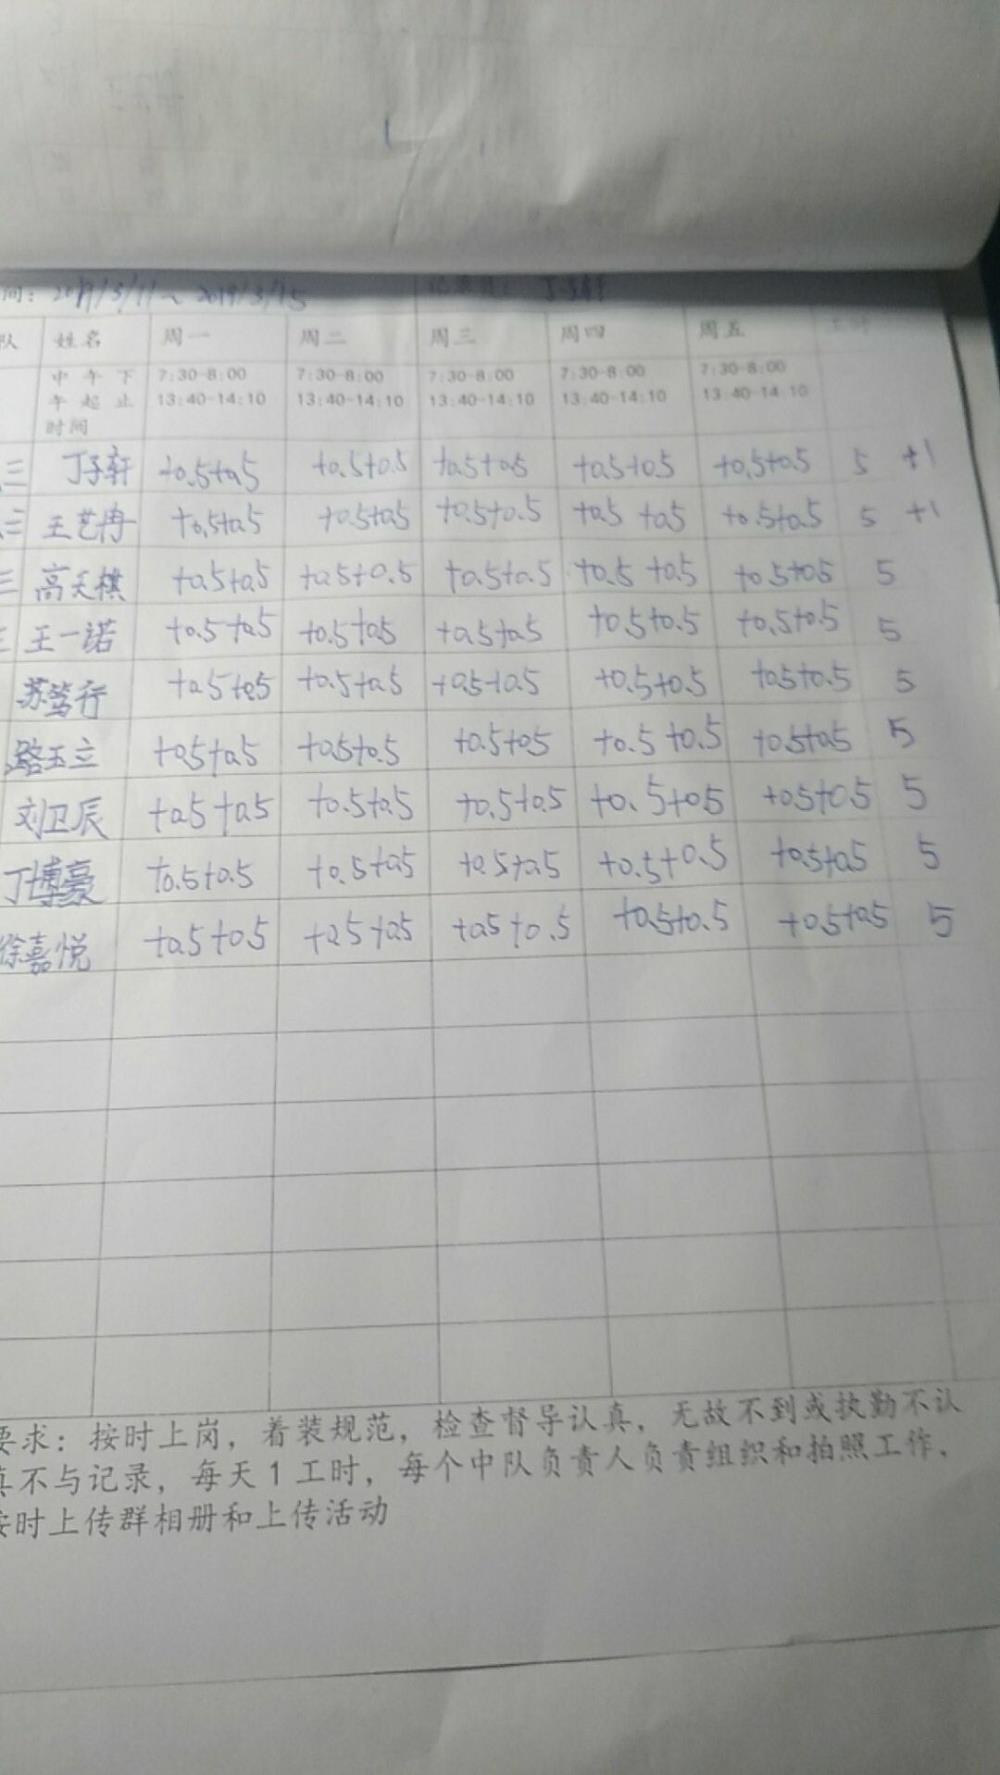 间：2019/3/11～2019/3/15 记录员：丁子轩
队 姓名 周一 周二 周三 周四 周五 工时
中午下 7:30-8:00 7:30-8:00 7:30-8:00 7:30-8:00 7:30-8:00
午起止 13:40-14:10 13:40-14:10 13:40-14:10 13:40-14:10 13:40-14:10
时间
三 丁子轩 +0.5+0.5 +0.5+0.5 +0.5+0.5 +0.5+0.5 +0.5+0.5 5 +1
三 王艺冉 +0.5+0.5 +0.5+0.5 +0.5+0.5 +0.5 +0.5 +0.5+0.5 5 +1
三 高天棋 +0.5+0.5 +0.5+0.5 +0.5+0.5 +0.5 +0.5 +0.5+0.5 5
三 王一诺 +0.5+0.5 +0.5+0.5 +0.5+0.5 +0.5+0.5 +0.5+0.5 5
苏笃行 +0.5+0.5 +0.5+0.5 +0.5+0.5 +0.5+0.5 +0.5+0.5 5
路玉立 +0.5+0.5 +0.5+0.5 +0.5+0.5 +0.5+0.5 +0.5+0.5 5
刘卫辰 +0.5+0.5 +0.5+0.5 +0.5+0.5 +0.5+0.5 +0.5+0.5 5
丁博豪 +0.5+0.5 +0.5+0.5 +0.5+0.5 +0.5+0.5 +0.5+0.5 5
徐嘉悦 +0.5+0.5 +0.5+0.5 +0.5+0.5 +0.5+0.5 +0.5+0.5 5
要求：按时上岗，着装规范，检查督导认真，无故不到或执勤不认
真不与记录，每天1工时，每个中队负责人负责组织和拍照工作，
按时上传群相册和上传活动